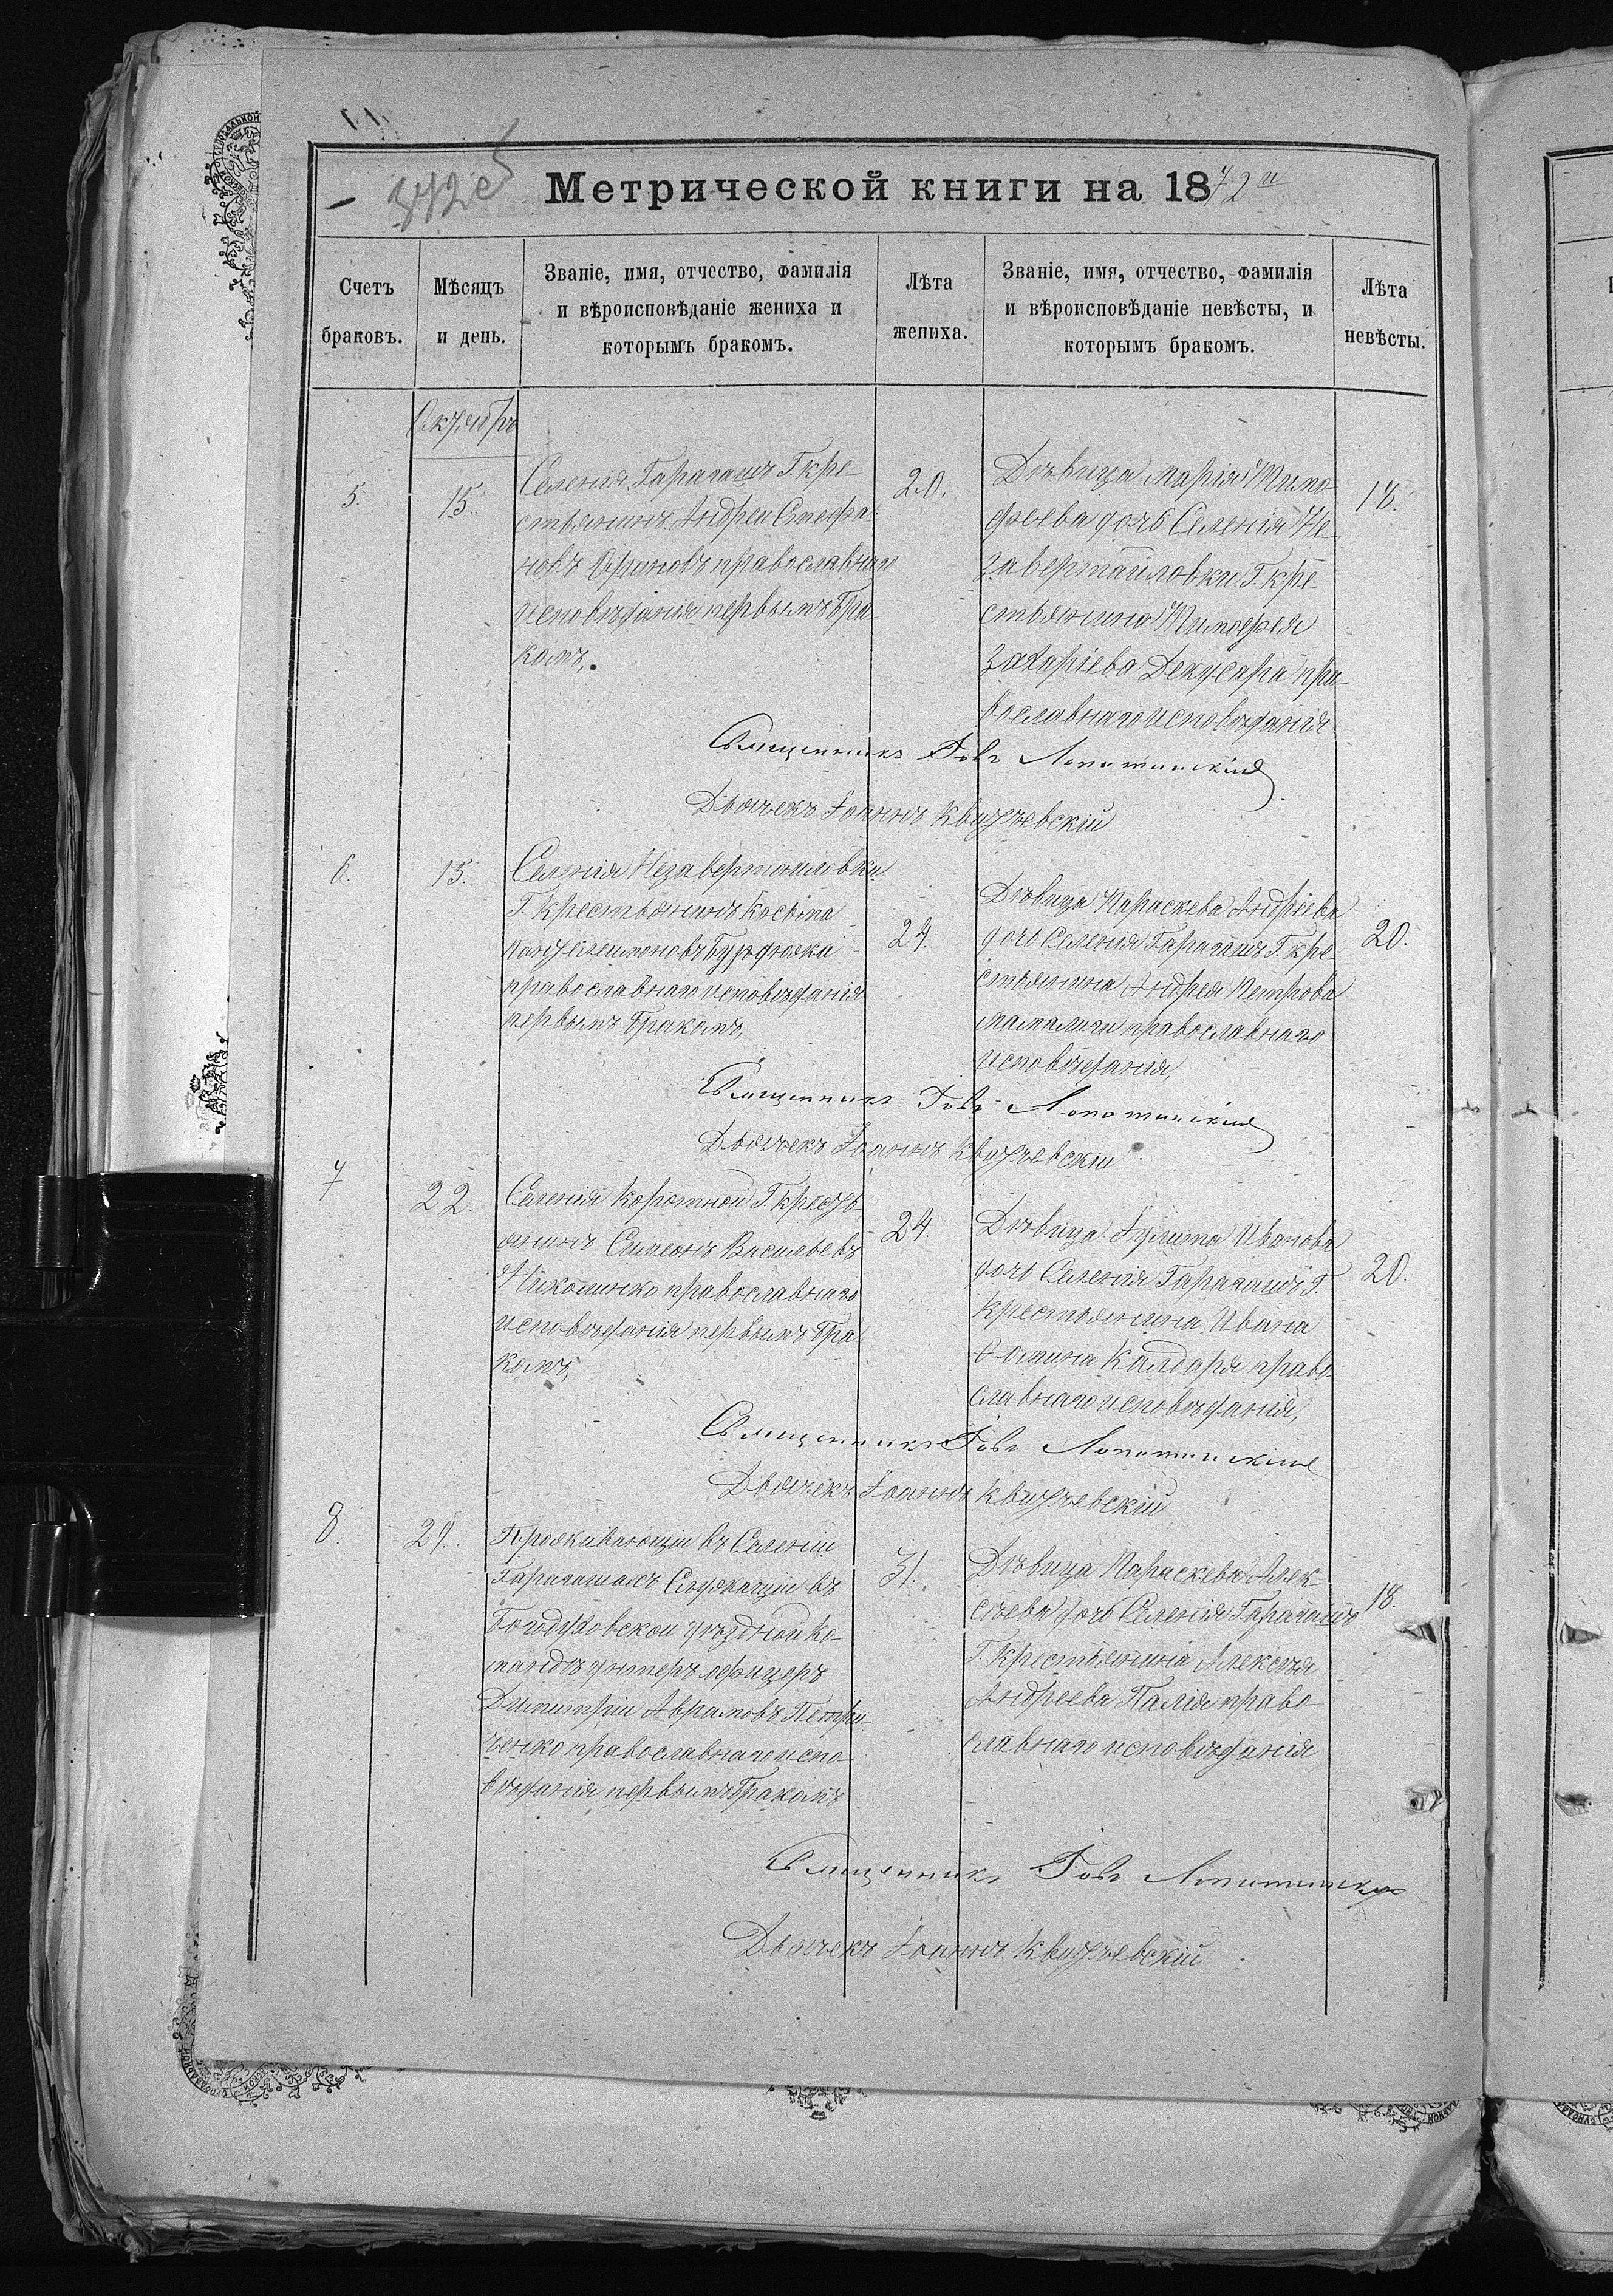 Метрической книги на 1872й
Счетъ браковъ.
Мѣсяцъ и день.
Званіе, имя, отчество, фамилія
и вѣроисповѣданіе жениха и
которымъ бракомъ.
Лѣта жениха.
Званіе, имя, отчество, фамилія
и вѣроисповѣданіе невѣсты, и
которымъ бракомъ.
Лѣта невѣсты.
Октябрь
5.
15.
Селенія Гарагашъ Г. кре-
стьянинъ Андреи Стефа-
новъ православнаго
исповѣданія первымъ бра-
комъ.
20.
Дѣвица Марія Тимо-
феева дочь Селенія Не-
завертаиловки Г. кре-
стьянина Тимофея
Захаріева Декусара пра-
вославнаго исповѣданія
18.
Священникъ Іовъ Лопатинскій
Дьячекъ Іоаннъ Квитчевскій
6.
15.
Селенія Незавертаиловки
Г. крестьянинъ Косьма
Пантелеимоновъ
православнаго исповѣданія
первымъ бракомъ,
24.
Дѣвица Параскева Андреева
дочь Селенія Гарагашъ Г. кре-
стьянина Андрея Петрова
мамалиги православнаго
исповѣданія,
20.
Священникъ Іовъ Лопатинскій
Дьячекъ Іоаннъ Квитчевскіи
7
22.
Селенія Коротнои Г. кресть-
янинъ Симеонъ Васильевъ
православнаго
исповѣданія первымъ бра-
комъ,
24.
Дѣвица Іулита Иванова
дочь Селенія Гарагашъ Г.
крестьянина Ивана
Фомина Калдаря право-
славнаго исповѣданія,
20.
Священникъ Іовъ Лопатинскій
Дьячекъ Іоаннъ Квитчевскій
8.
29.
Проживающіи въ Селеніи
Гарагашахъ Служащіи въ
Богодуховскои уѣзднои ко-
мандѣ унтеръ офицеръ
Димитріи Аврамовъ Петри-
ченко православнаго испо-
вѣданія первымъ бракомъ
31.
Дѣвица Параскева Алек-
сѣева дочь Селенія Гарагашъ
Г. крестьянина Алексѣя
Андреева Палія право-
славнаго исповѣданія
18.
Священникъ Іовъ Лопатинскій
Дьячекъ Іоаннъ Квитчевскій